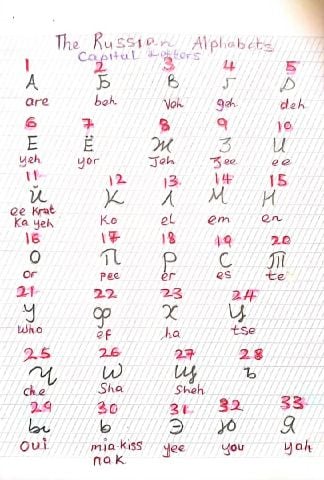 The Russian Alphabets
Capital Letters
1 2 3 4 5
А Б В Г Д
are beh Veh geh deh
6 7 8 9 10
Е Ё Ж З И
yeh yor Jeh Zee ee
11 12 13 14 15
Й К Л М Н
ee Krat Ko el em en
Ka yeh
16 17 18 19 20
О П Р С Т
or pee er es te
21 22 23 24
У Ф Х Ц
who ef ha tse
25 26 27 28
Ч Ш Щ Ъ
che Sha Sheh
29 30 31 32 33
Ы Ь Э Ю Я
oui mia-kiss yee you yah
nak